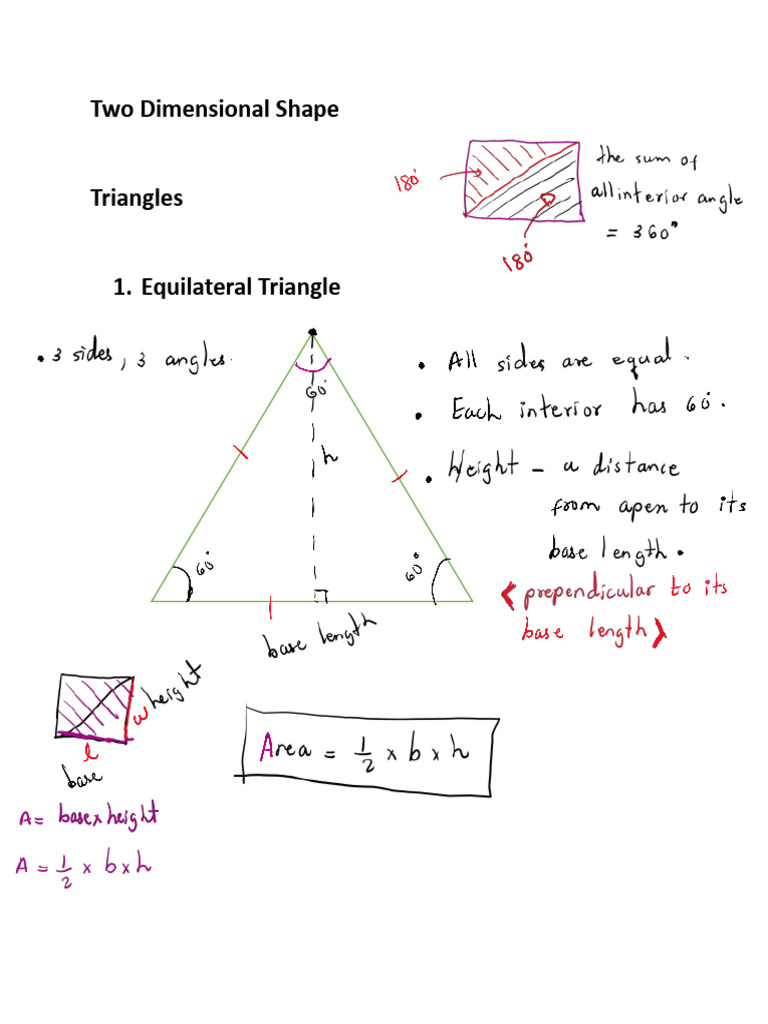 Two Dimensional Shape
180°
the sum of
all interior angle
= 360°
Triangles
180°
1. Equilateral Triangle
• 3 sides, 3 angles.
60°
h
60°
60°
base length
• All sides are equal.
• Each interior has 60°.
• Height - a distance
from apen to its
base length.
<prependicular to its
base length>
height
w
l
base
Area = 1/2 x b x h
A = base x height
A = 1/2 x b x h